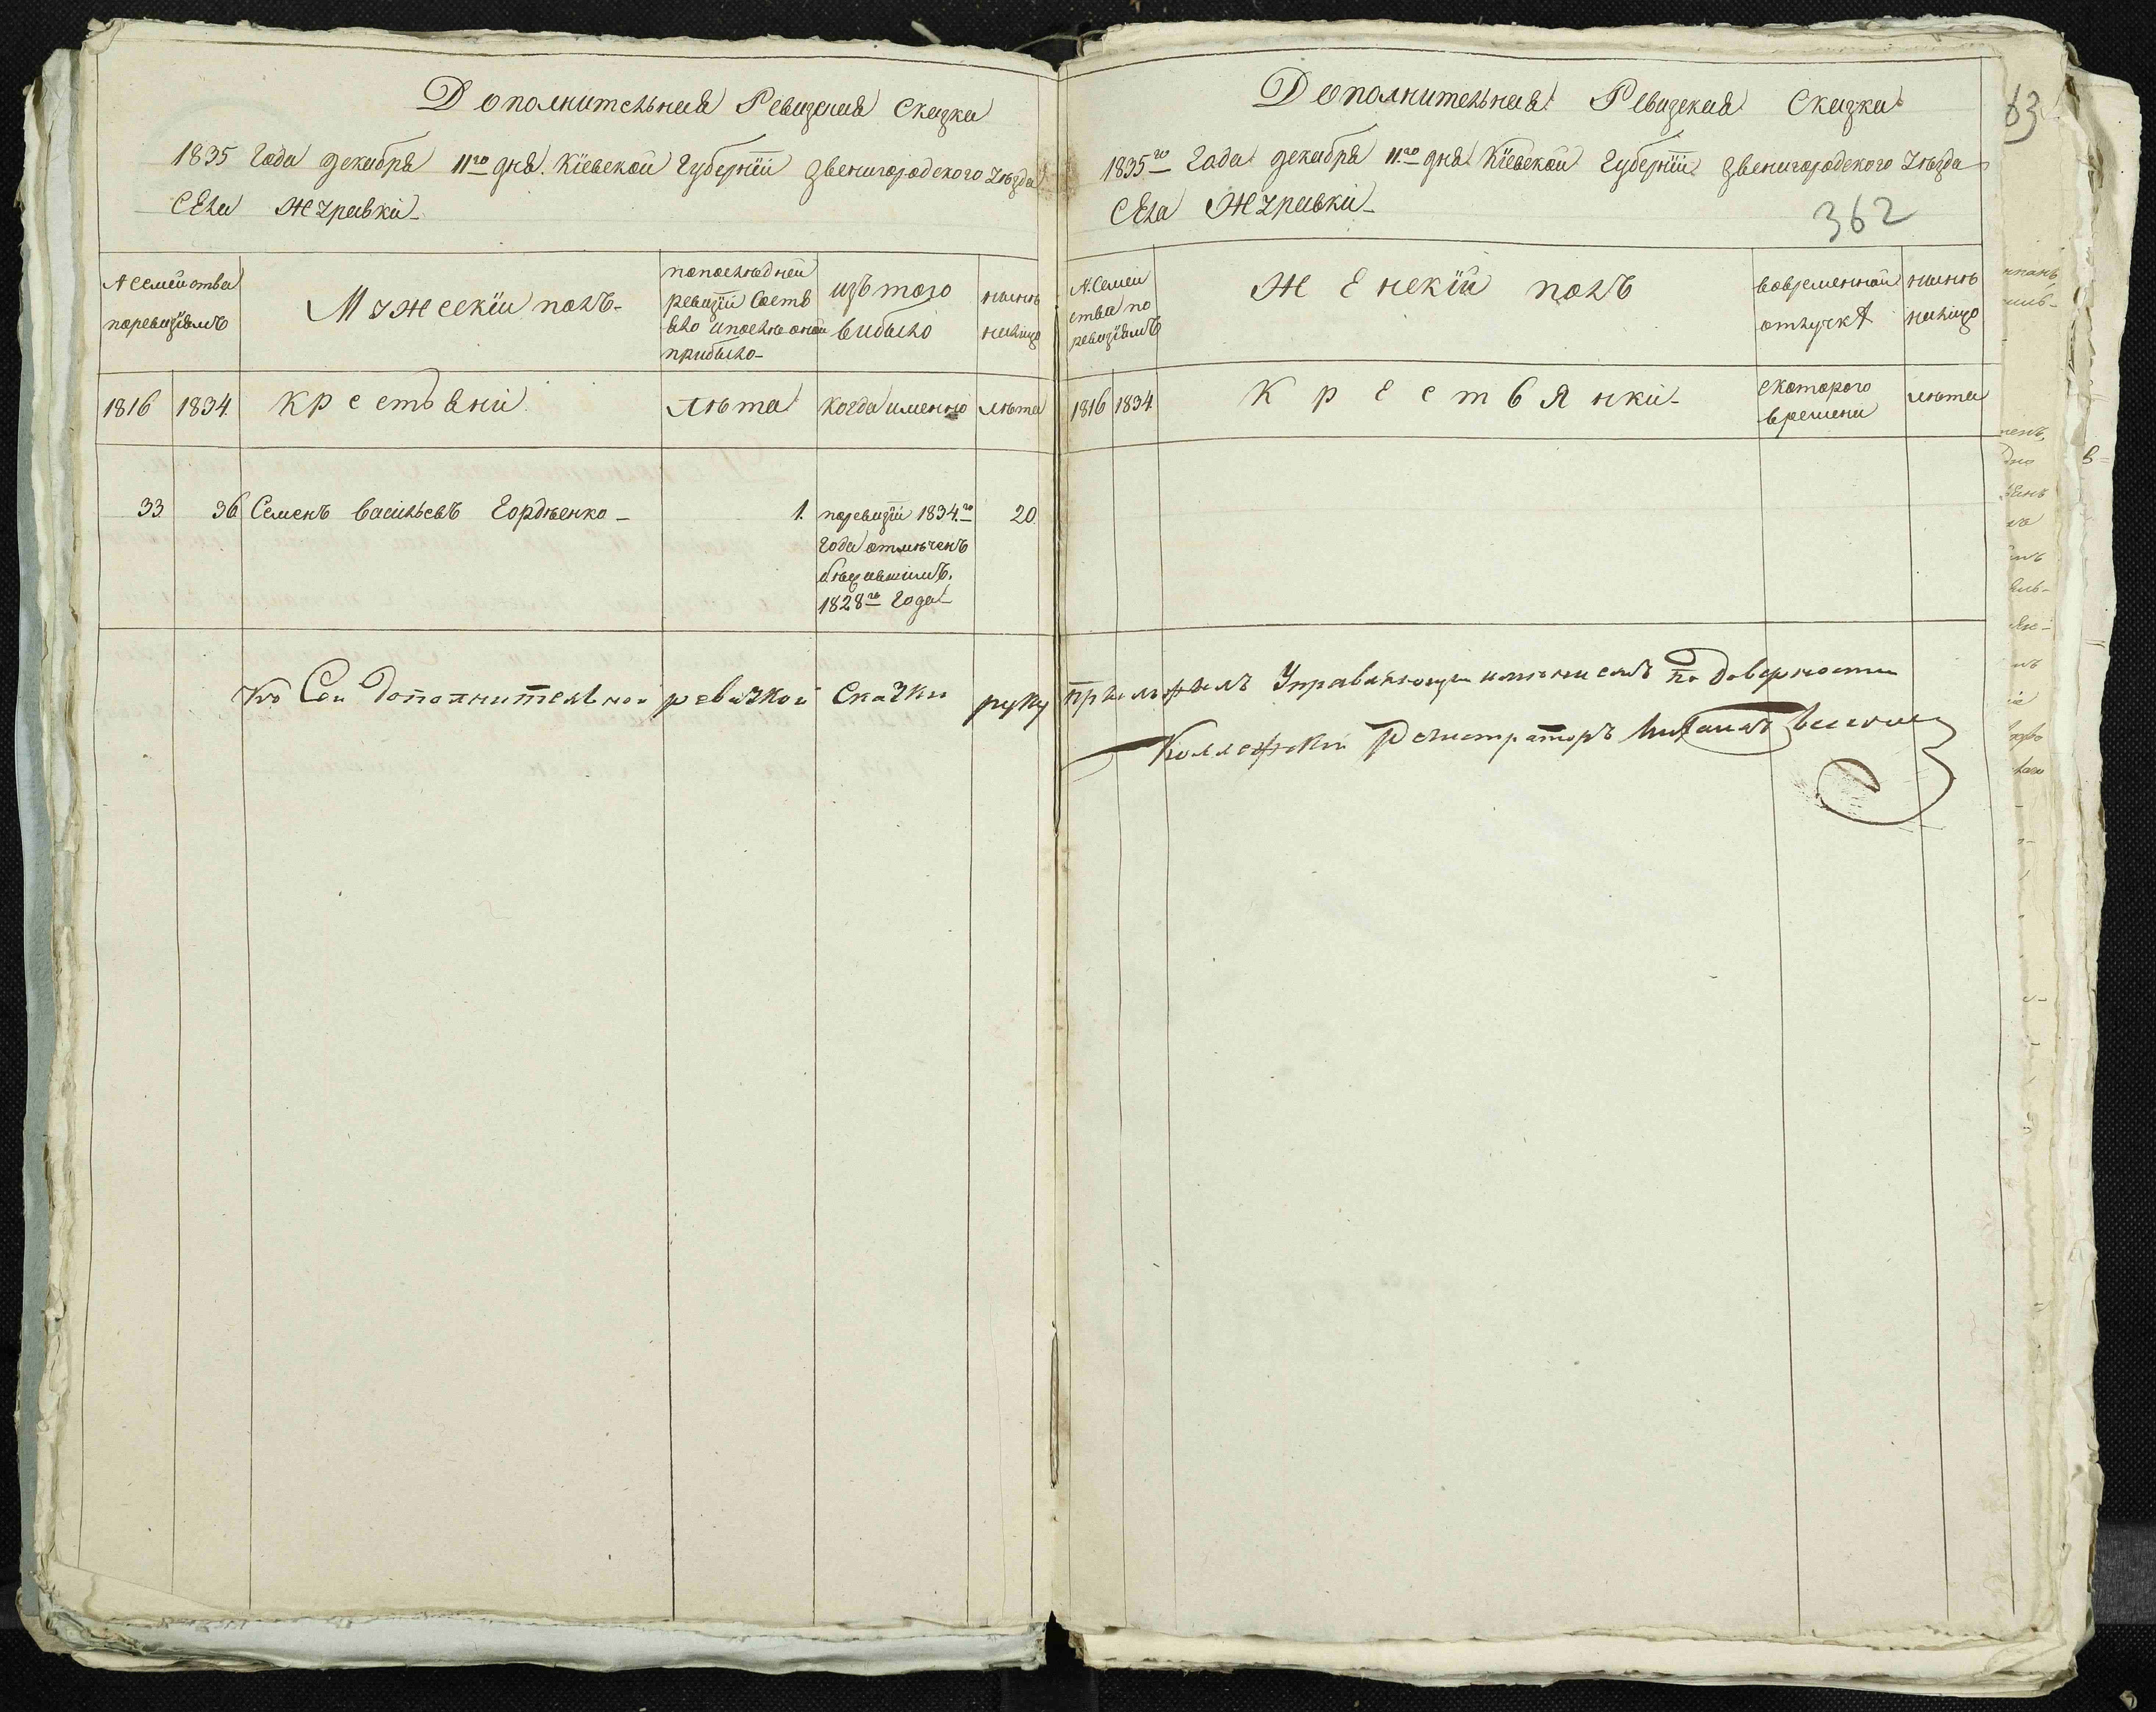 Дополнительная Ревизская Сказка
1835 Года декабря 11го дня Кіевской Губерніи Звенигородского Уѣзда
Села Журавки
№ Семейства
поревизіямъ
Мужескїй полъ
попослѣдней
ревизіи Состо
яло ипослѣ оной
прибыло
изъ того
выбыло
нынѣ
налицо
1816
1834
Крестьяни
Лѣта
Когда именно
Лѣта
33
36
Семенъ Васильевъ Гордѣенко
1.
поревизіи 1834го
Года отмѣченъ
бѣжавшимъ
1828го Года
20.
Дополнительная Ревизская Сказка
1835го Года декабря 11го дня Кіевской Губерніи Звенигородского Уѣзда
Села Журавки
63
362
№ Семей
ства по
ревизіямъ
Женскїй полъ
вовременной
отлучкѣ
нынѣ
налицо
1816
1834
Крестьянки
скоторого
времени
лѣта
Ко Сей дополнительной ревизкой Сказки руку приложилъ Управляющи имѣниемъ по доверности
Коллежски Регистраторъ Михаилъ